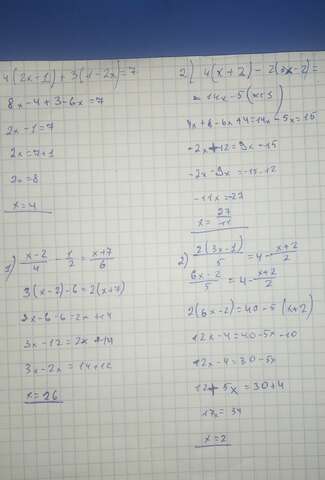 4(2x-1)+3(1-2x)=7
8x-4+3-6x=7
2x-1=7
2x=7+1
2x=8
x=4
1) x-2/4 - 1/2 = x+7/6
3(x-2)-6=2(x+7)
3x-6-6=2x+14
3x-12=2x+14
3x-2x=14+12
x=26
2) 4(x+2)-2(3x-2)=
=14x-5(x+3)
4x+8-6x+4=14x-5x=15
-2x+12=9x-15
-2x-9x=-15-12
-11x=-27
x=27/11
2) 2(3x-1)/5 = 4-x+2/2
6x-2/5 = 4-x+2/2
2(6x-2)=40-5(x+2)
12x-4=40-5x-10
12x-4=30-5x
12+5x=30+4
17x=34
x=2